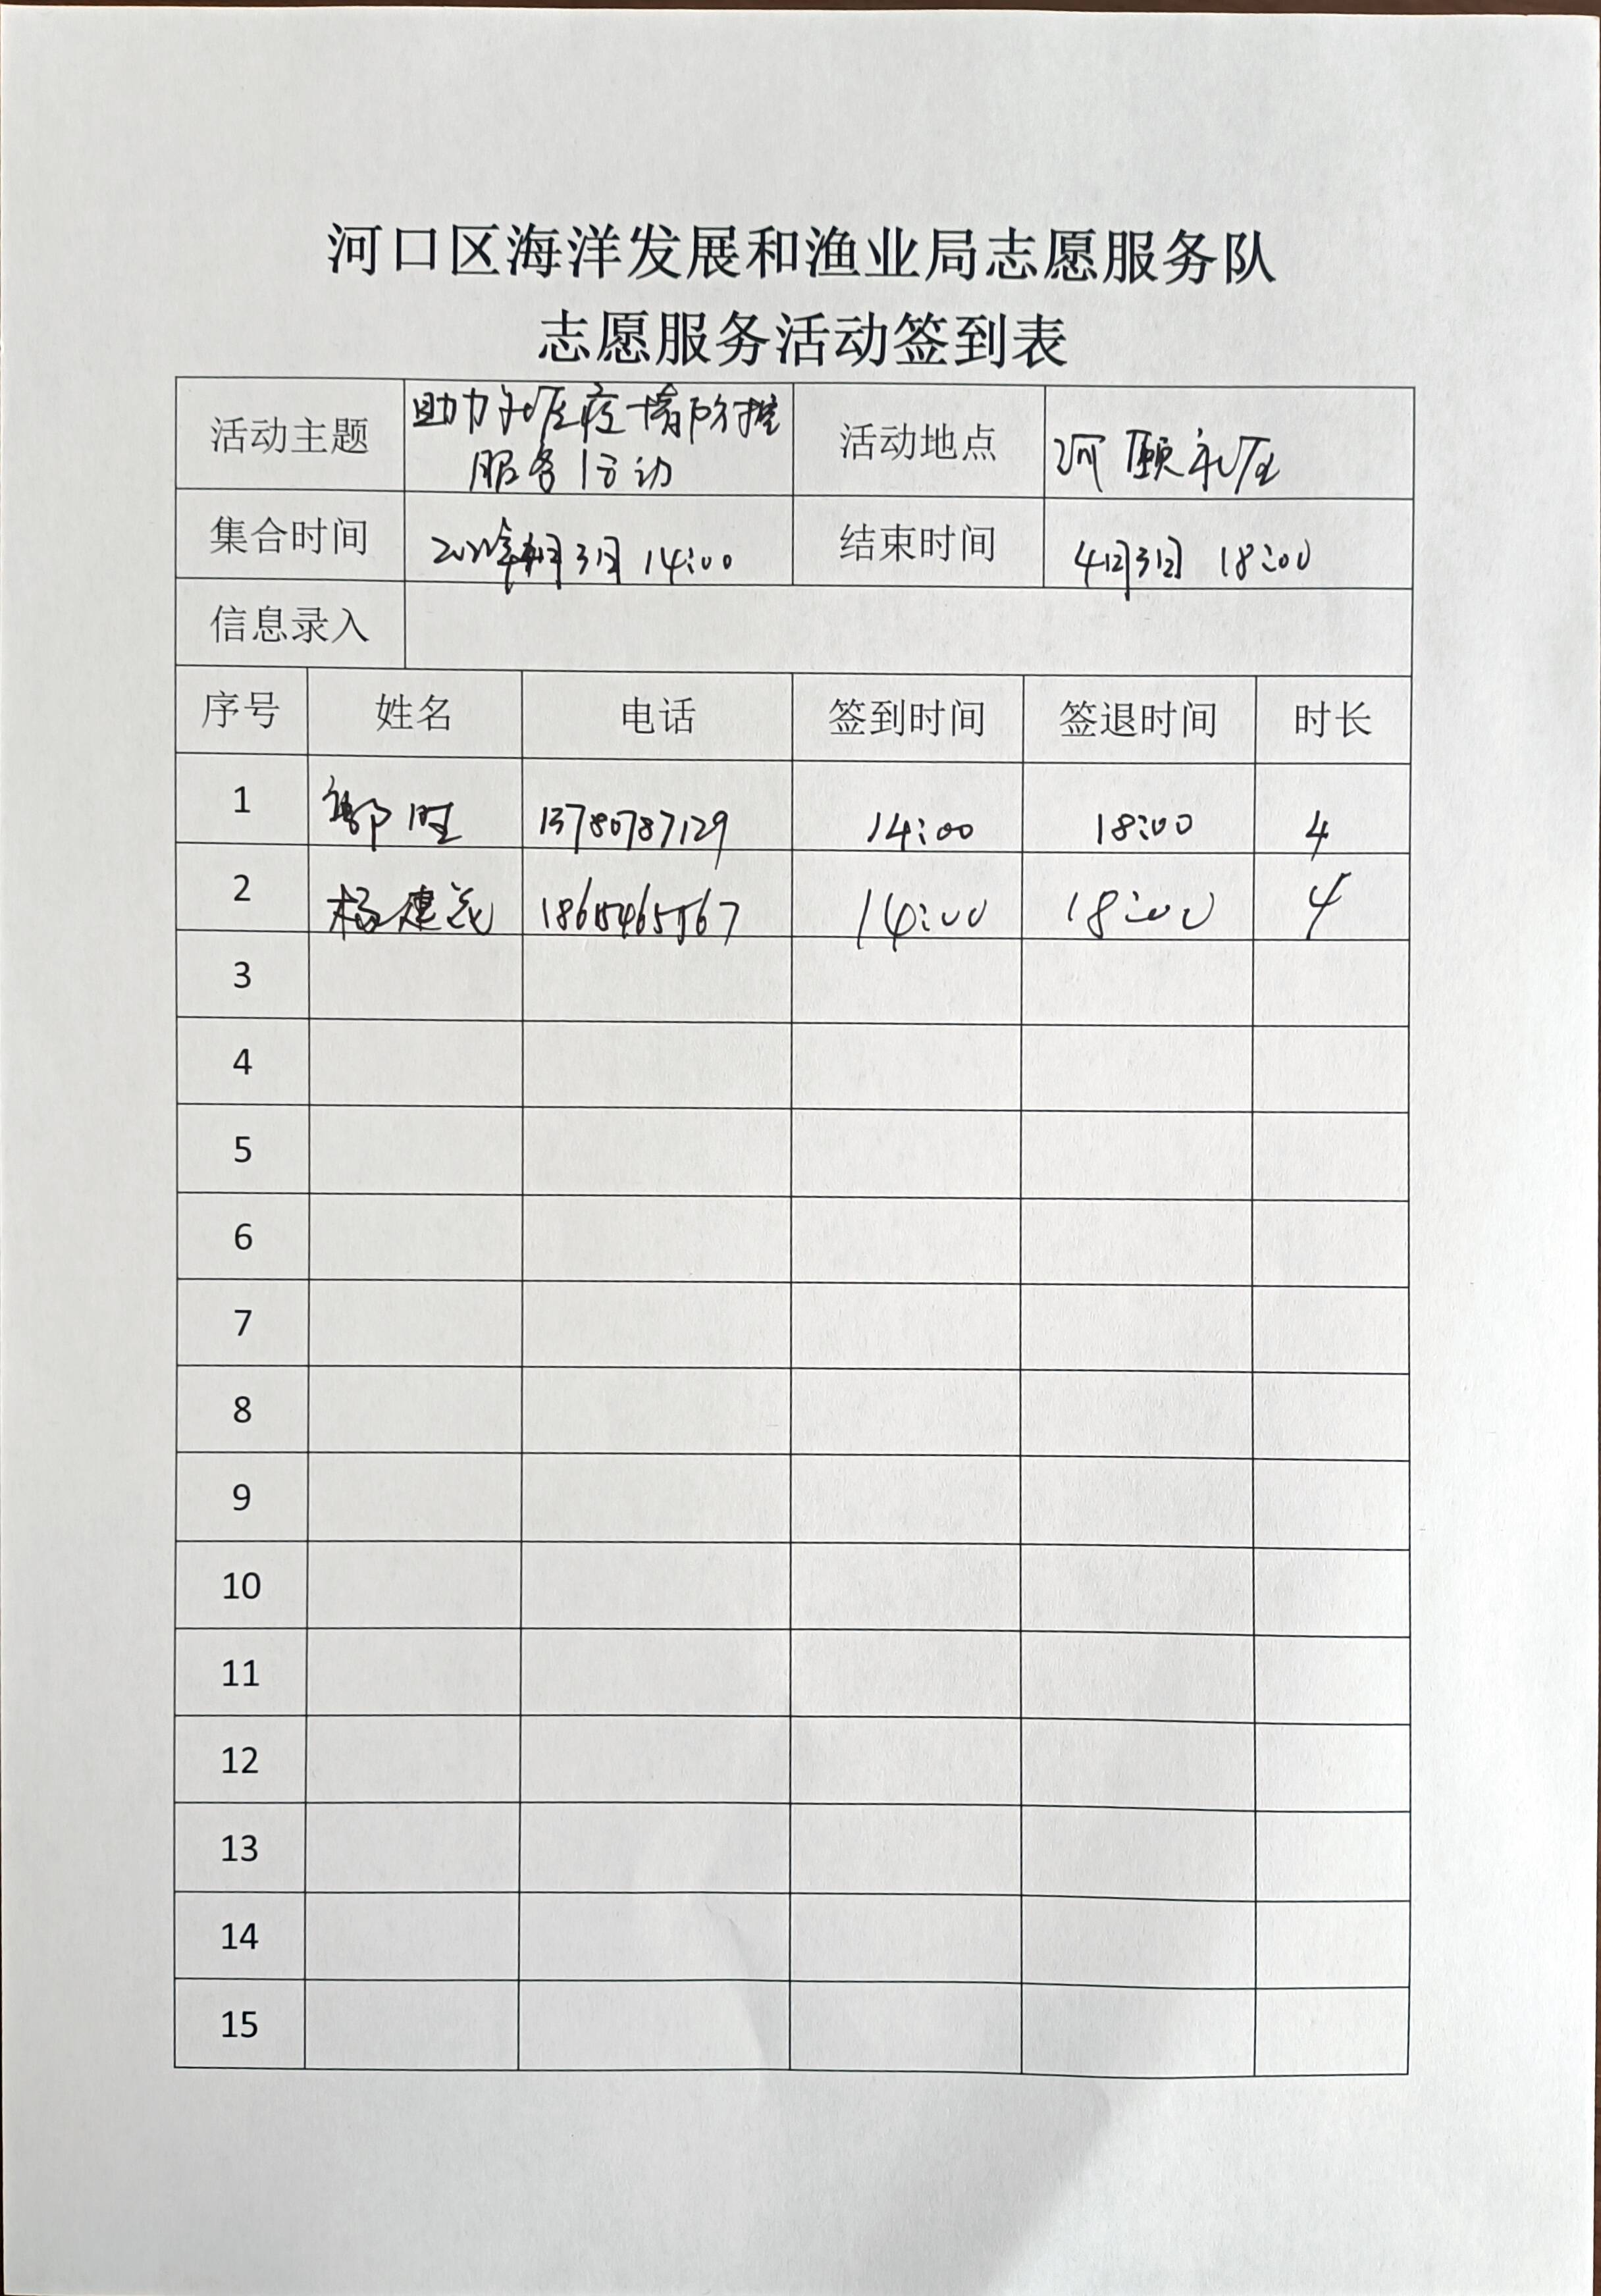 河口区海洋发展和渔业局志愿服务队
志愿服务活动签到表
活动主题 助力社区疫情防控 活动地点 河颐社区
服务行动
集合时间 2022年4月3日 14:00 结束时间 4月3日 18:00
信息录入
序号 姓名 电话 签到时间 签退时间 时长
1 13780787129 14:00 18:00 4
2 杨建 18615465567 14:00 18:00 4
3
4
5
6
7
8
9
10
11
12
13
14
15